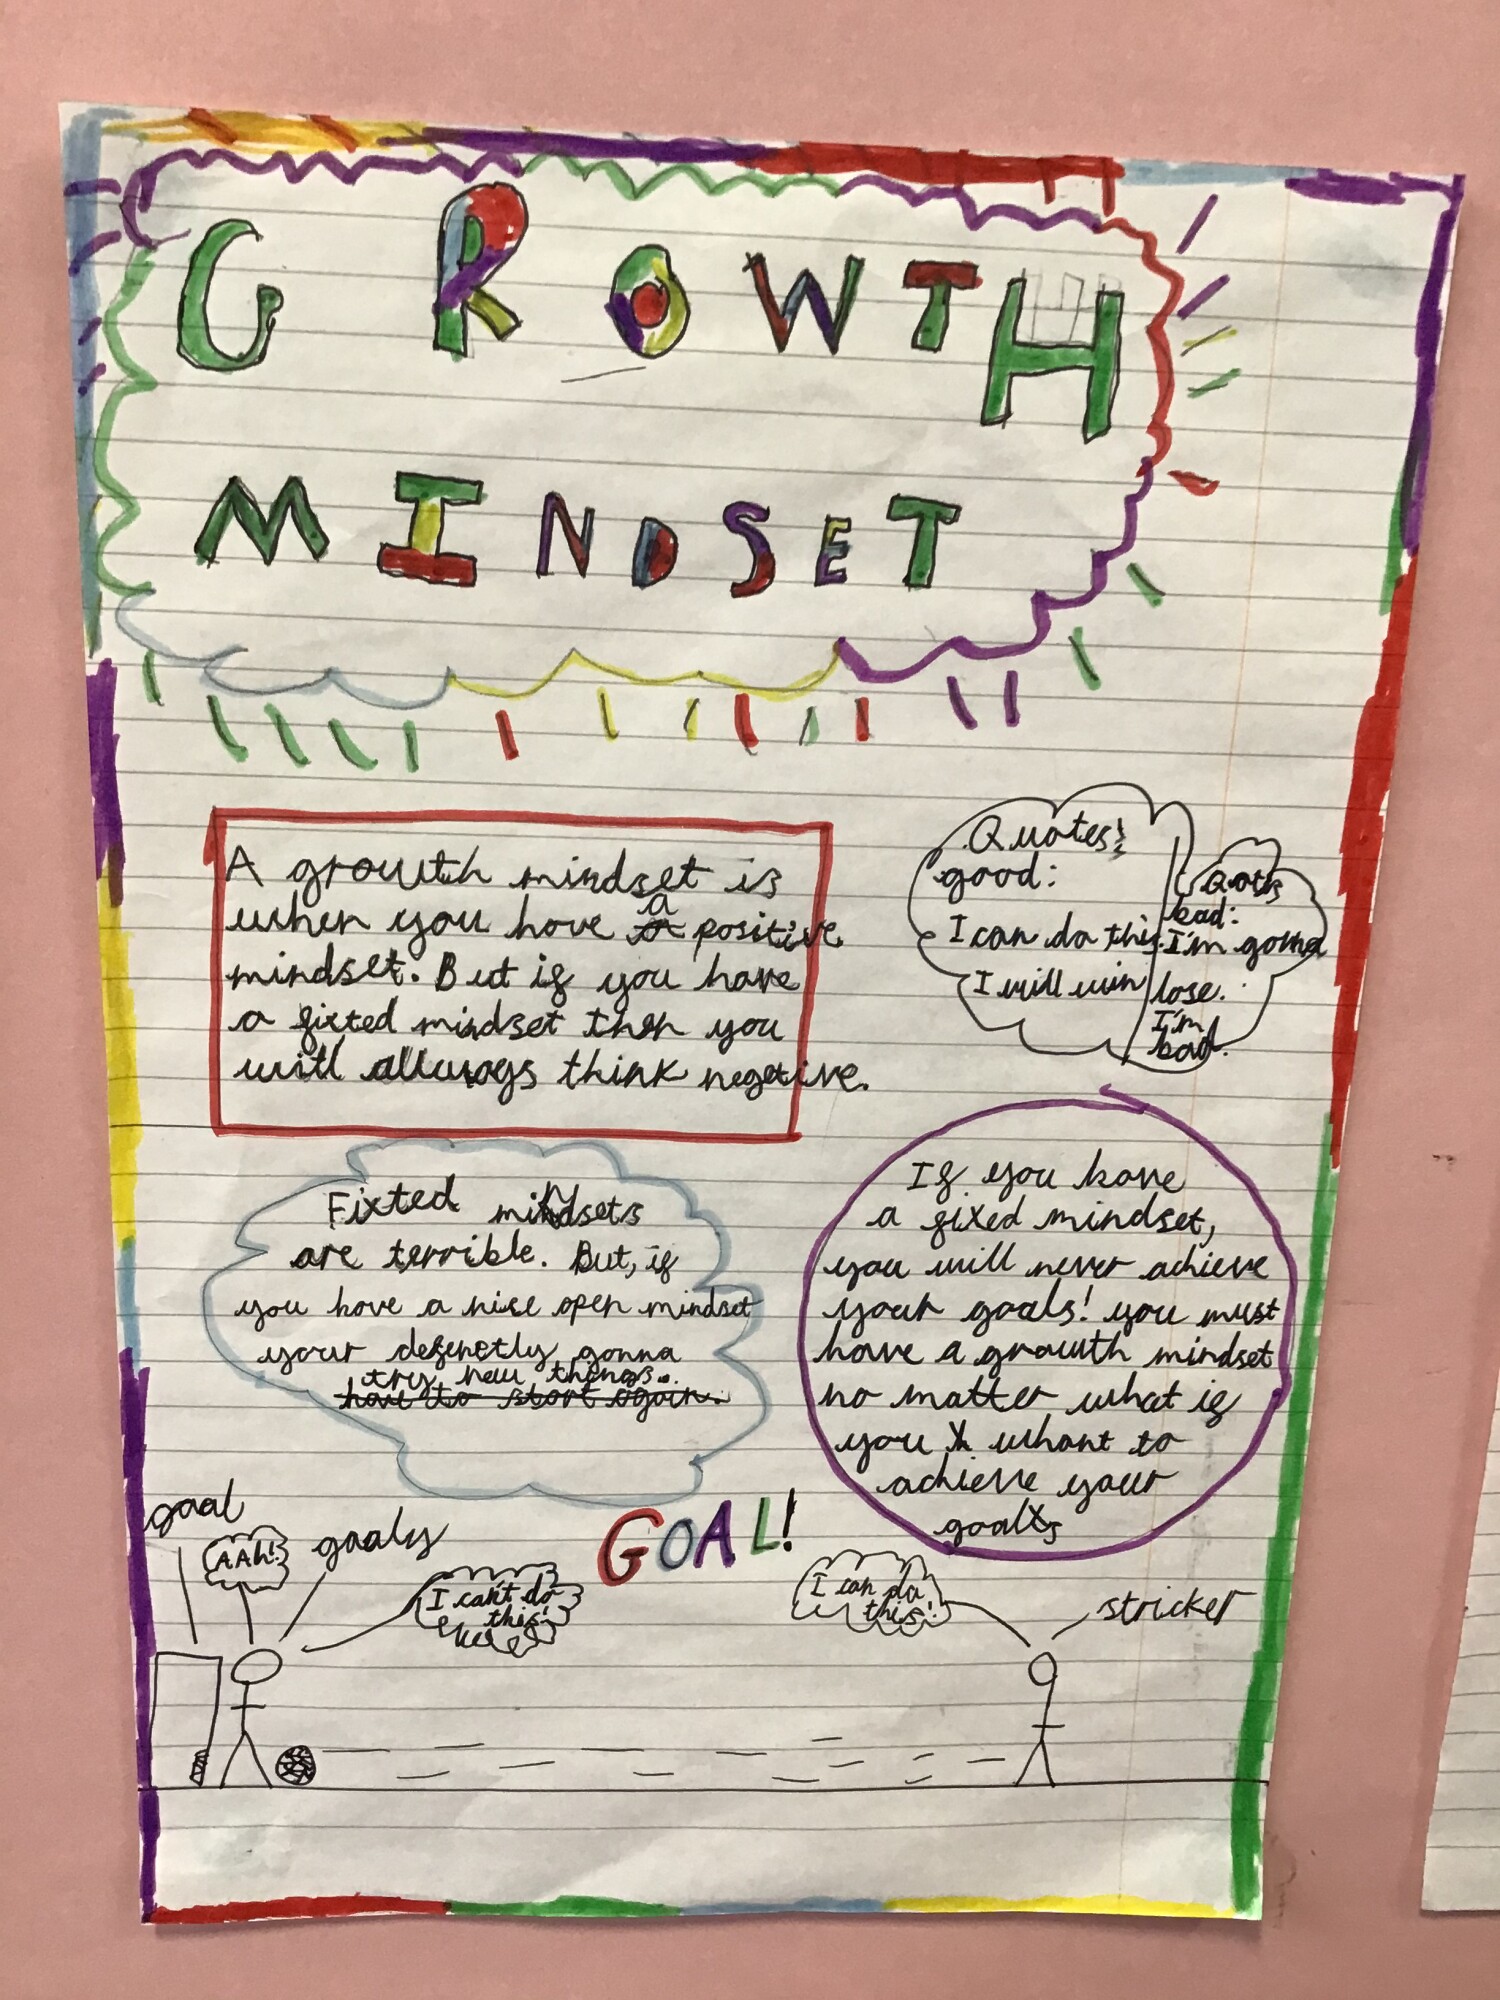 GROWTH
MINDSET
A growth mindset is
when you have a positive
mindset. But if you have
a fixted mindset then you
will allways think negetive.
Quotes:
good:
I can do this.
I will win
Quots
bad:
I'm gonna
lose.
I'm
bad.
Fixted mindsets
are terrible. But, if
you have a nise open mindset
your defenetly gonna
try new things.
have to start again.
If you have
a fixed mindset,
you will never achieve
your goals! you must
have a growth mindset
no matter what if
you whant to
achieve your
goals
GOAL!
goal
AAh!
goaly
I can't do
this!
I can do
this!
stricker